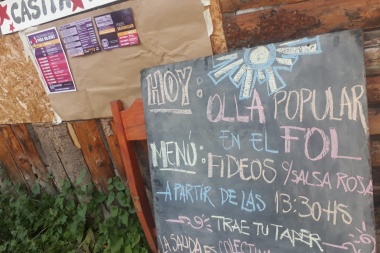 CASITA
HOY:
OLLA POPULAR
EN EL FOL
MENÚ: FIDEOS C/SALSA ROSA
A PARTIR DE LAS 13:30HS
TRAE TU TAPER
LA SALIDA ES COLECTIVA